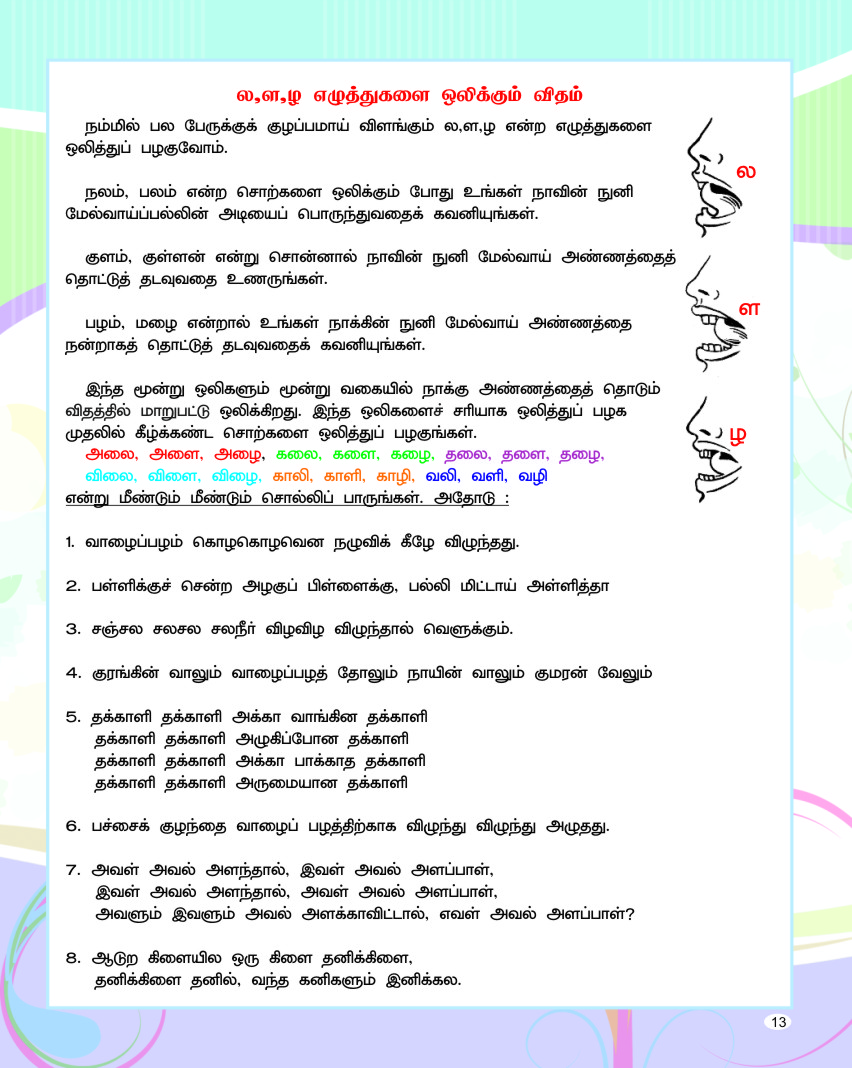 ல,ள,ழ எழுத்துகளை ஒலிக்கும் விதம்
நம்மில் பல பேருக்குக் குழப்பமாய் விளங்கும் ல,ள,ழ என்ற எழுத்துகளை
ஒலித்துப் பழகுவோம்.
நலம், பலம் என்ற சொற்களை ஒலிக்கும் போது உங்கள் நாவின் நுனி
மேல்வாய்ப்பல்லின் அடியைப் பொருந்துவதைக் கவனியுங்கள்.
குளம், குள்ளன் என்று சொன்னால் நாவின் நுனி மேல்வாய் அண்ணத்தைத்
தொட்டுத் தடவுவதை உணருங்கள்.
பழம், மழை என்றால் உங்கள் நாக்கின் நுனி மேல்வாய் அண்ணத்தை
நன்றாகத் தொட்டுத் தடவுவதைக் கவனியுங்கள்.
இந்த மூன்று ஒலிகளும் மூன்று வகையில் நாக்கு அண்ணத்தைத் தொடும்
விதத்தில் மாறுபட்டு ஒலிக்கிறது. இந்த ஒலிகளைச் சரியாக ஒலித்துப் பழக
முதலில் கீழ்க்கண்ட சொற்களை ஒலித்துப் பழகுங்கள்.
அலை, அளை, அழை, கலை, களை, கழை, தலை, தளை, தழை,
விலை, விளை, விழை, காலி, காளி, காழி, வலி, வளி, வழி
என்று மீண்டும் மீண்டும் சொல்லிப் பாருங்கள். அதோடு :
ல
ள
ழ
1. வாழைப்பழம் கொழகொழவென நழுவிக் கீழே விழுந்தது.
2. பள்ளிக்குச் சென்ற அழகுப் பிள்ளைக்கு, பல்லி மிட்டாய் அள்ளித்தா
3. சஞ்சல சலசல சலநீர் விழவிழ விழுந்தால் வெளுக்கும்.
4. குரங்கின் வாலும் வாழைப்பழத் தோலும் நாயின் வாலும் குமரன் வேலும்
5. தக்காளி தக்காளி அக்கா வாங்கின தக்காளி
தக்காளி தக்காளி அழுகிப்போன தக்காளி
தக்காளி தக்காளி அக்கா பாக்காத தக்காளி
தக்காளி தக்காளி அருமையான தக்காளி
6. பச்சைக் குழந்தை வாழைப் பழத்திற்காக விழுந்து விழுந்து அழுதது.
7. அவள் அவல் அளந்தால், இவள் அவல் அளப்பாள்,
இவள் அவல் அளந்தால், அவள் அவல் அளப்பாள்,
அவளும் இவளும் அவல் அளக்காவிட்டால், எவள் அவல் அளப்பாள்?
8. ஆடுற கிளையில ஒரு கிளை தனிக்கிளை,
தனிக்கிளை தனில், வந்த கனிகளும் இனிக்கல.
13